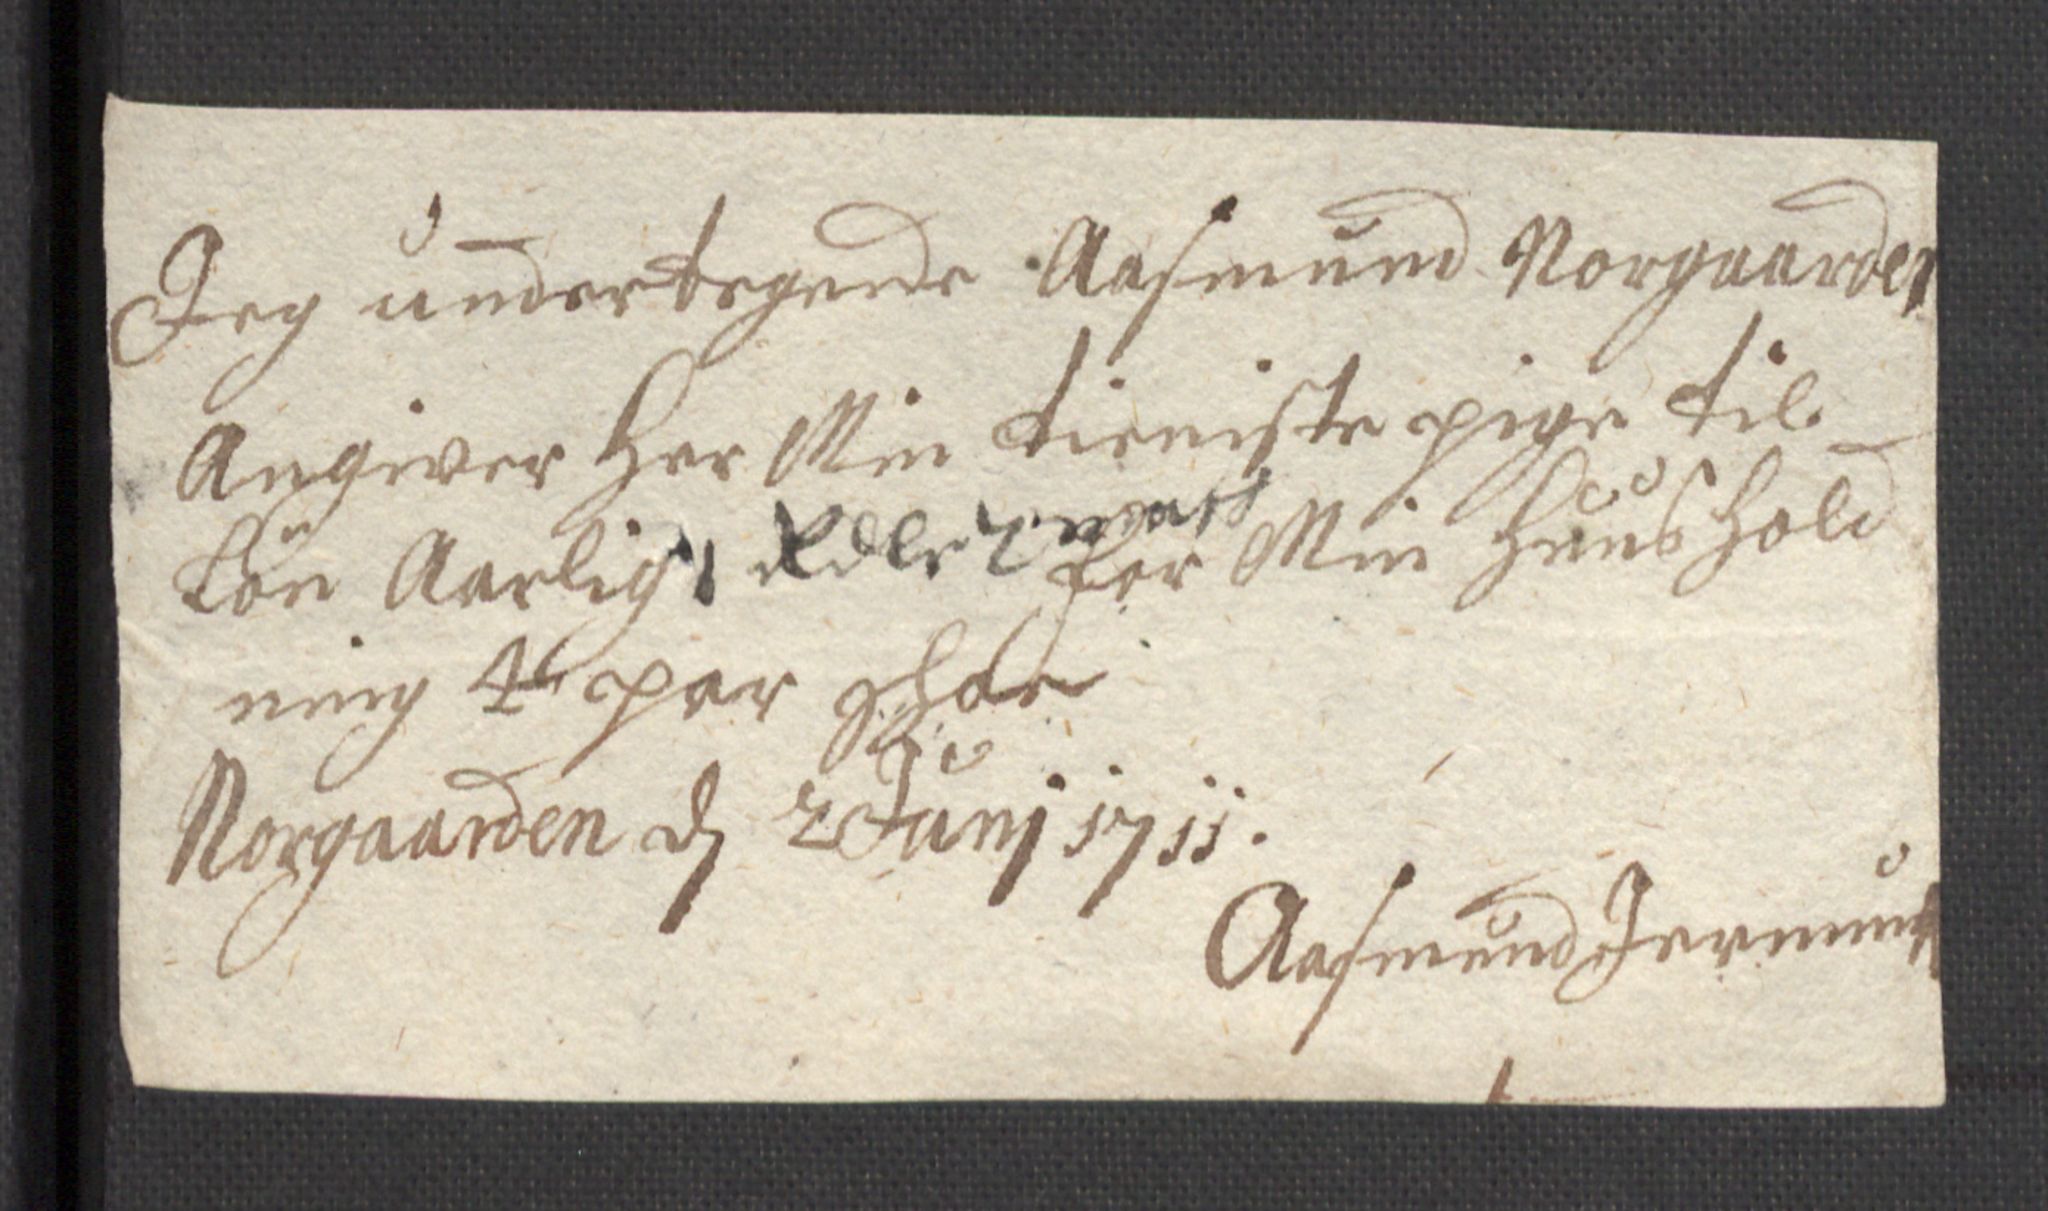 Jeg undertegnede Aasmund Norgaarden
Angiver Her Min tieniste pige til
Lön Aarlig 1 Rdlr for Min Huus Hold
ning 4 par Skoe
Norgaarden d 2 Junj 1711.
Aasmund